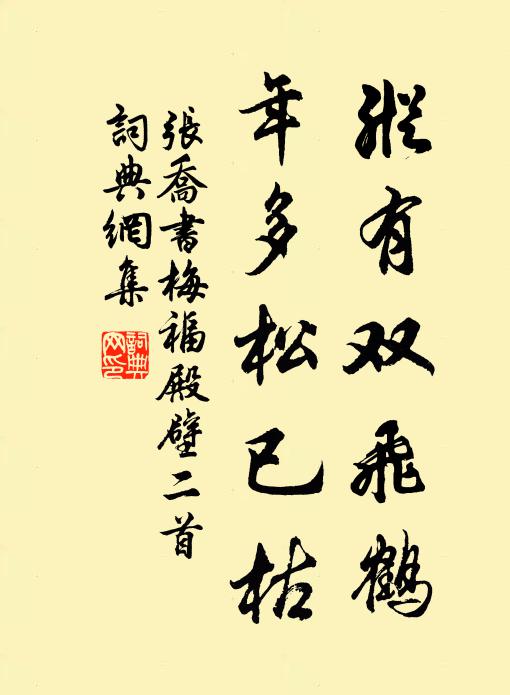 縱有双飛鶴
年多松已枯
張喬書梅福殿壁二首
詞典網集
詞典
网印